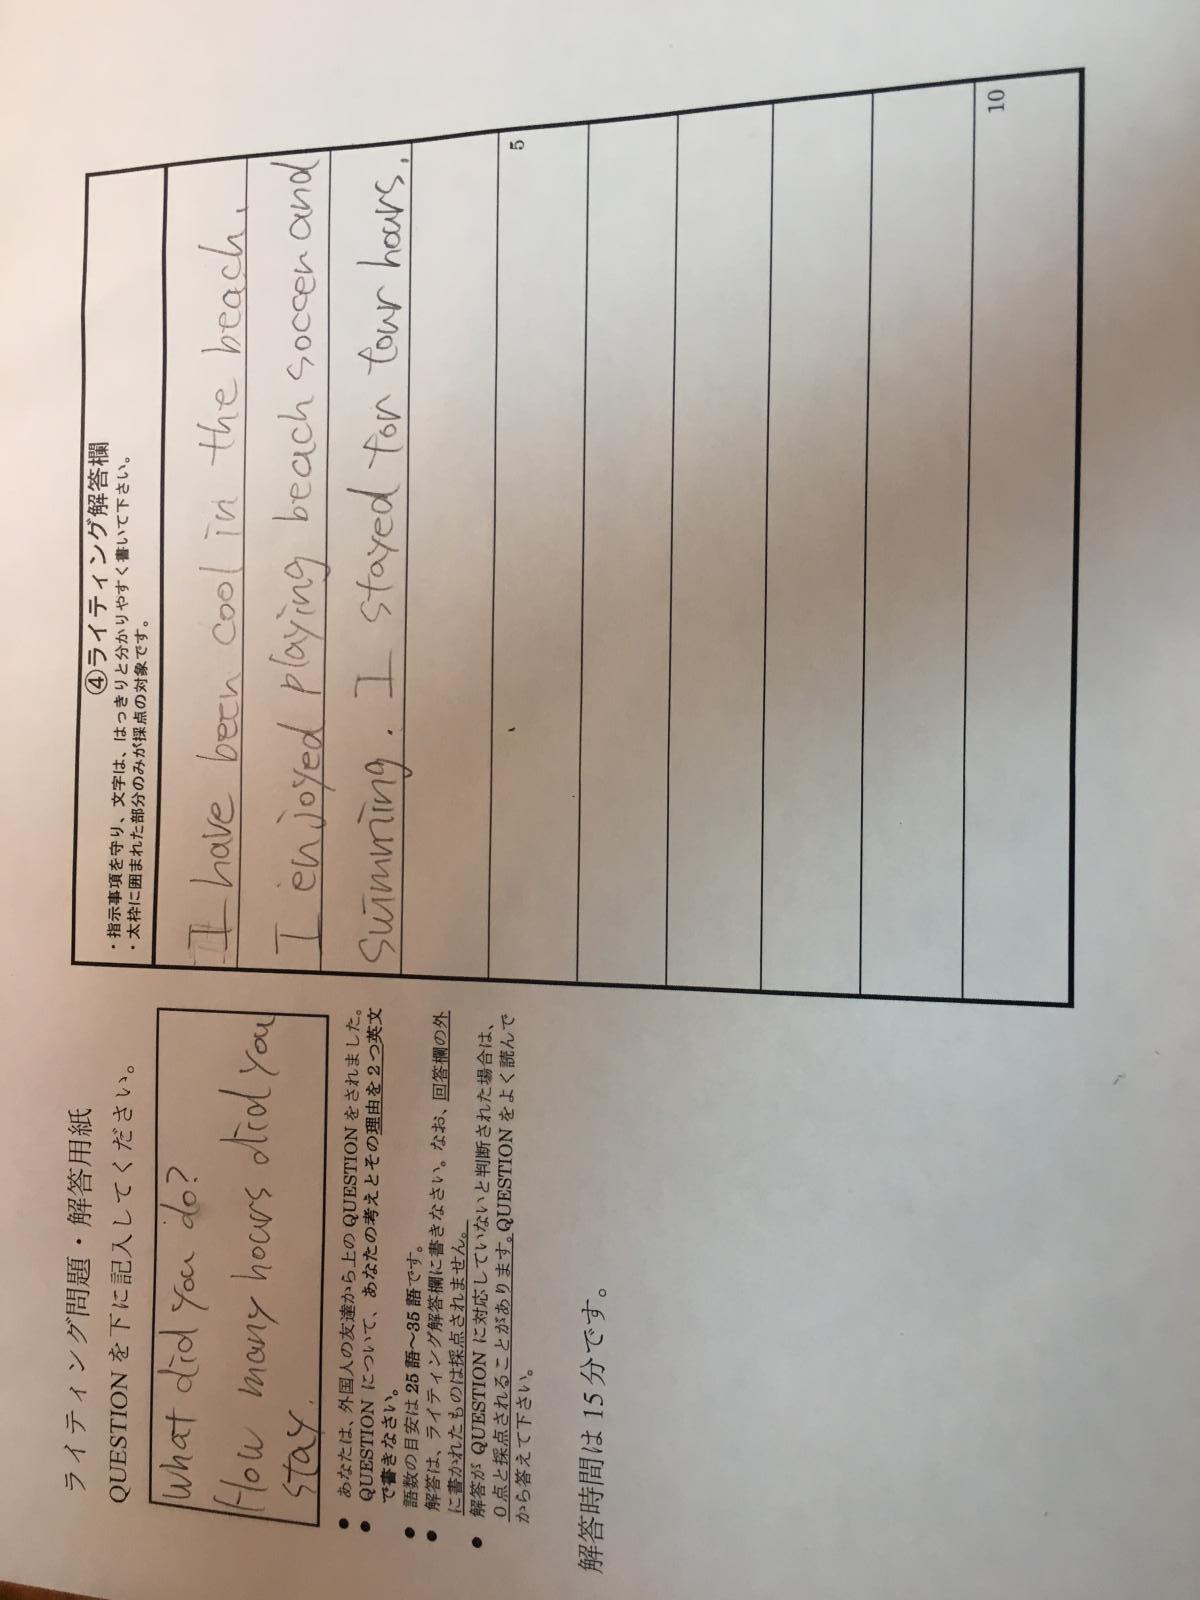 ライティング問題・解答用紙
QUESTION を下に記入してください。
What did you do?
How many hours did you
stay.
● あなたは、外国人の友達から上の QUESTION をされました。
● QUESTION について、あなたの考えとその理由を2つ英文
で書きなさい。
● 語数の目安は 25 語～35 語です。
● 解答は、ライティング解答欄に書きなさい。なお、回答欄の外
に書かれたものは採点されません。
● 解答が QUESTION に対応していないと判断された場合は、
0点と採点されることがあります。QUESTION をよく読んで
から答えて下さい。
解答時間は 15 分です。
④ライティング解答欄
・指示事項を守り、文字は、はっきりと分かりやすく書いて下さい。
・太枠に囲まれた部分のみが採点の対象です。
I have been cool in the beach.
I enjoyed playing beach soccer and
Swimming. I stayed for four hours.
5
10